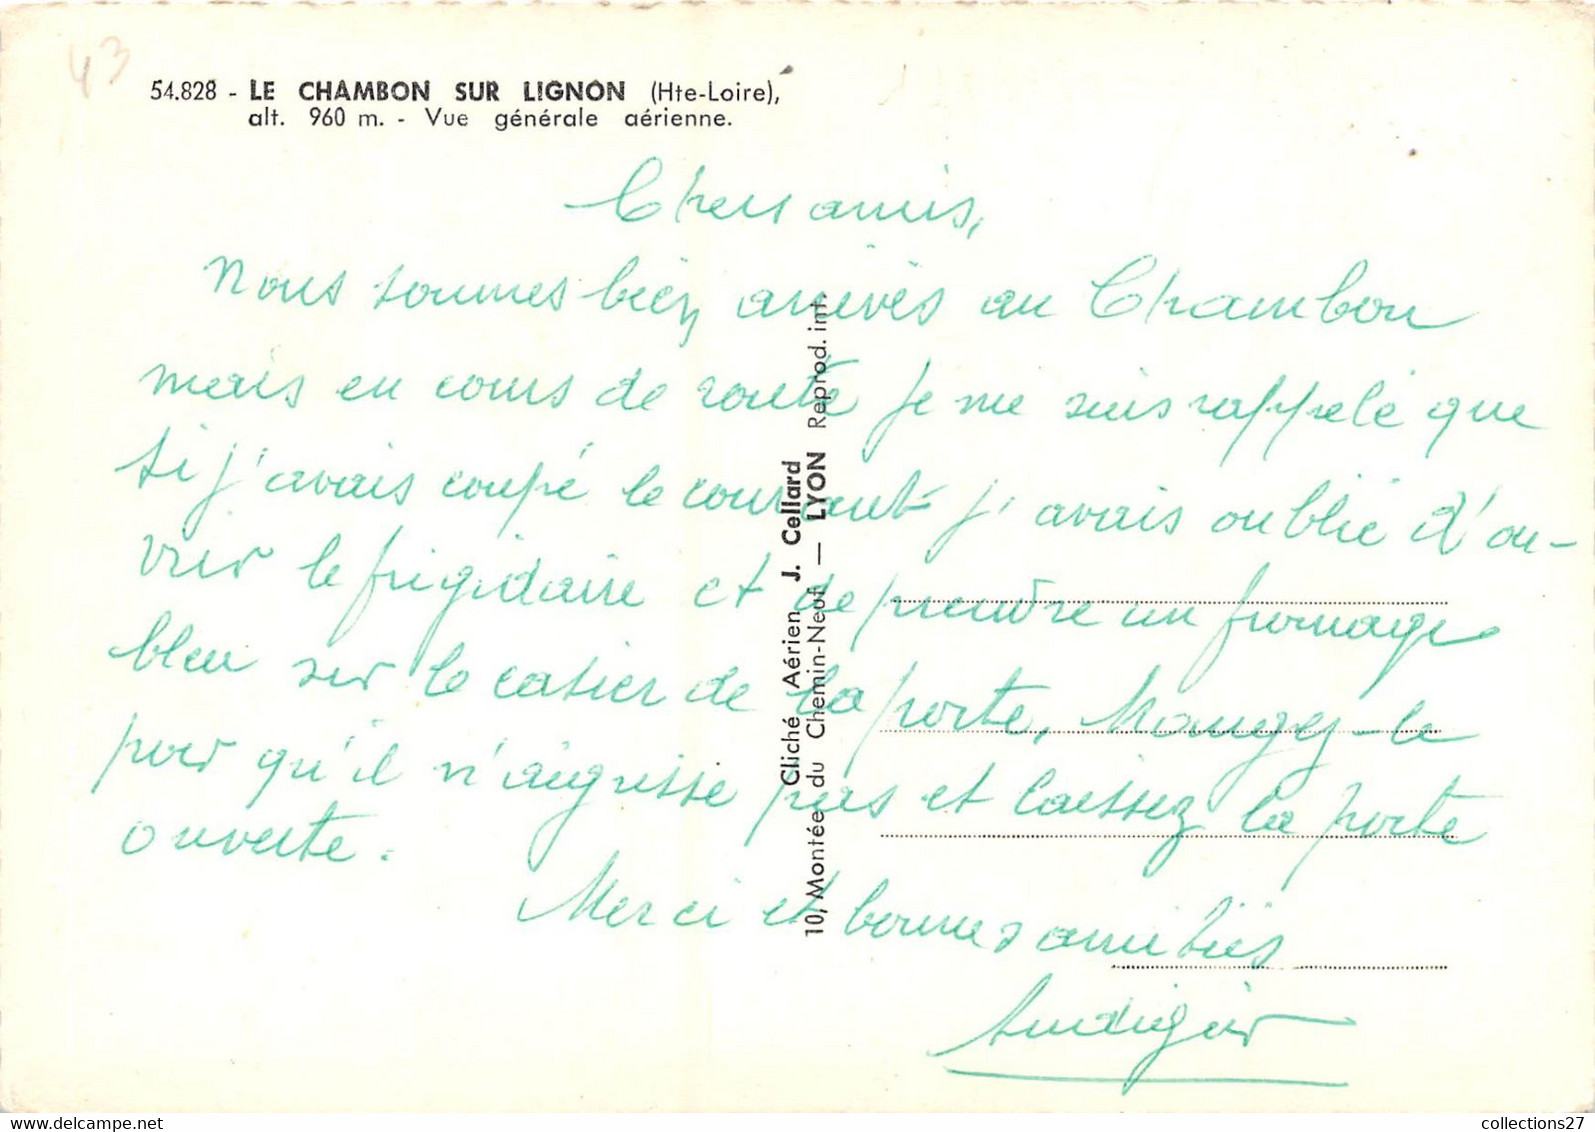 43
54.828 - LE CHAMBON SUR LIGNON (Hte-Loire),
alt. 960 m. - Vue générale aérienne.
Chers amis,
Nous sommes bien arrivés au Chambon
mais en cours de route je me suis rappelé que
si j'avais coupé le courant j'avais oublié d'ou-
vrir le frigidaire et de prendre un fromage
bleu sur le casier de la porte, Mangez-le
pour qu'il n'aigrisse pas et laissez la porte
ouverte.
Merci et bonnes amitiés
Audigier
Cliché Aérien J. Cellard
10, Montée du Chemin-Neuf — LYON Reprod. int.
collections27